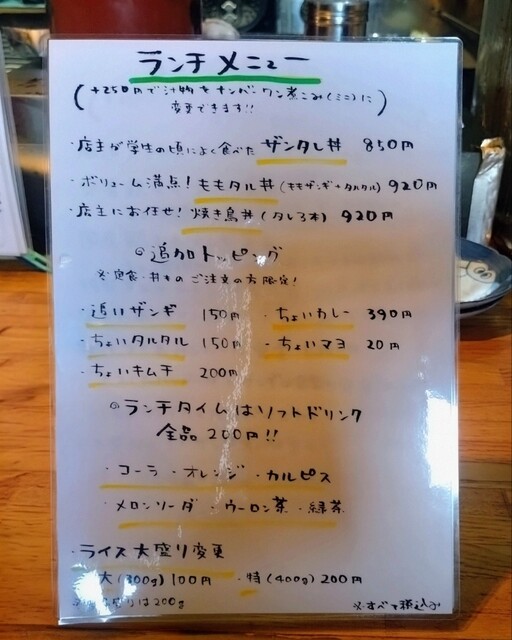 ランチメニュー
(+250円で汁物をナンバーワン煮こみ(ミニ)に
変更できます!!)
・店主が学生の頃によく食べた ザンタレ丼 850円
・ボリューム満点!ももタル丼(ももザンギ+タルタル) 920円
・店主にお任せ!焼き鳥丼(タレ3本) 920円
◎追加トッピング
※定食・丼もの ご注文の方限定!
・追いザンギ 150円 ・ちょいカレー 390円
・ちょいタルタル 150円 ・ちょいマヨ 20円
・ちょいキムチ 200円
◎ランチタイムはソフトドリンク
全品200円!!
・コーラ ・オレンジ ・カルピス
・メロンソーダ ・ウーロン茶 ・緑茶
・ライス大盛り変更
・大(300g)100円 ・特(400g)200円
は200g ※すべて税込み